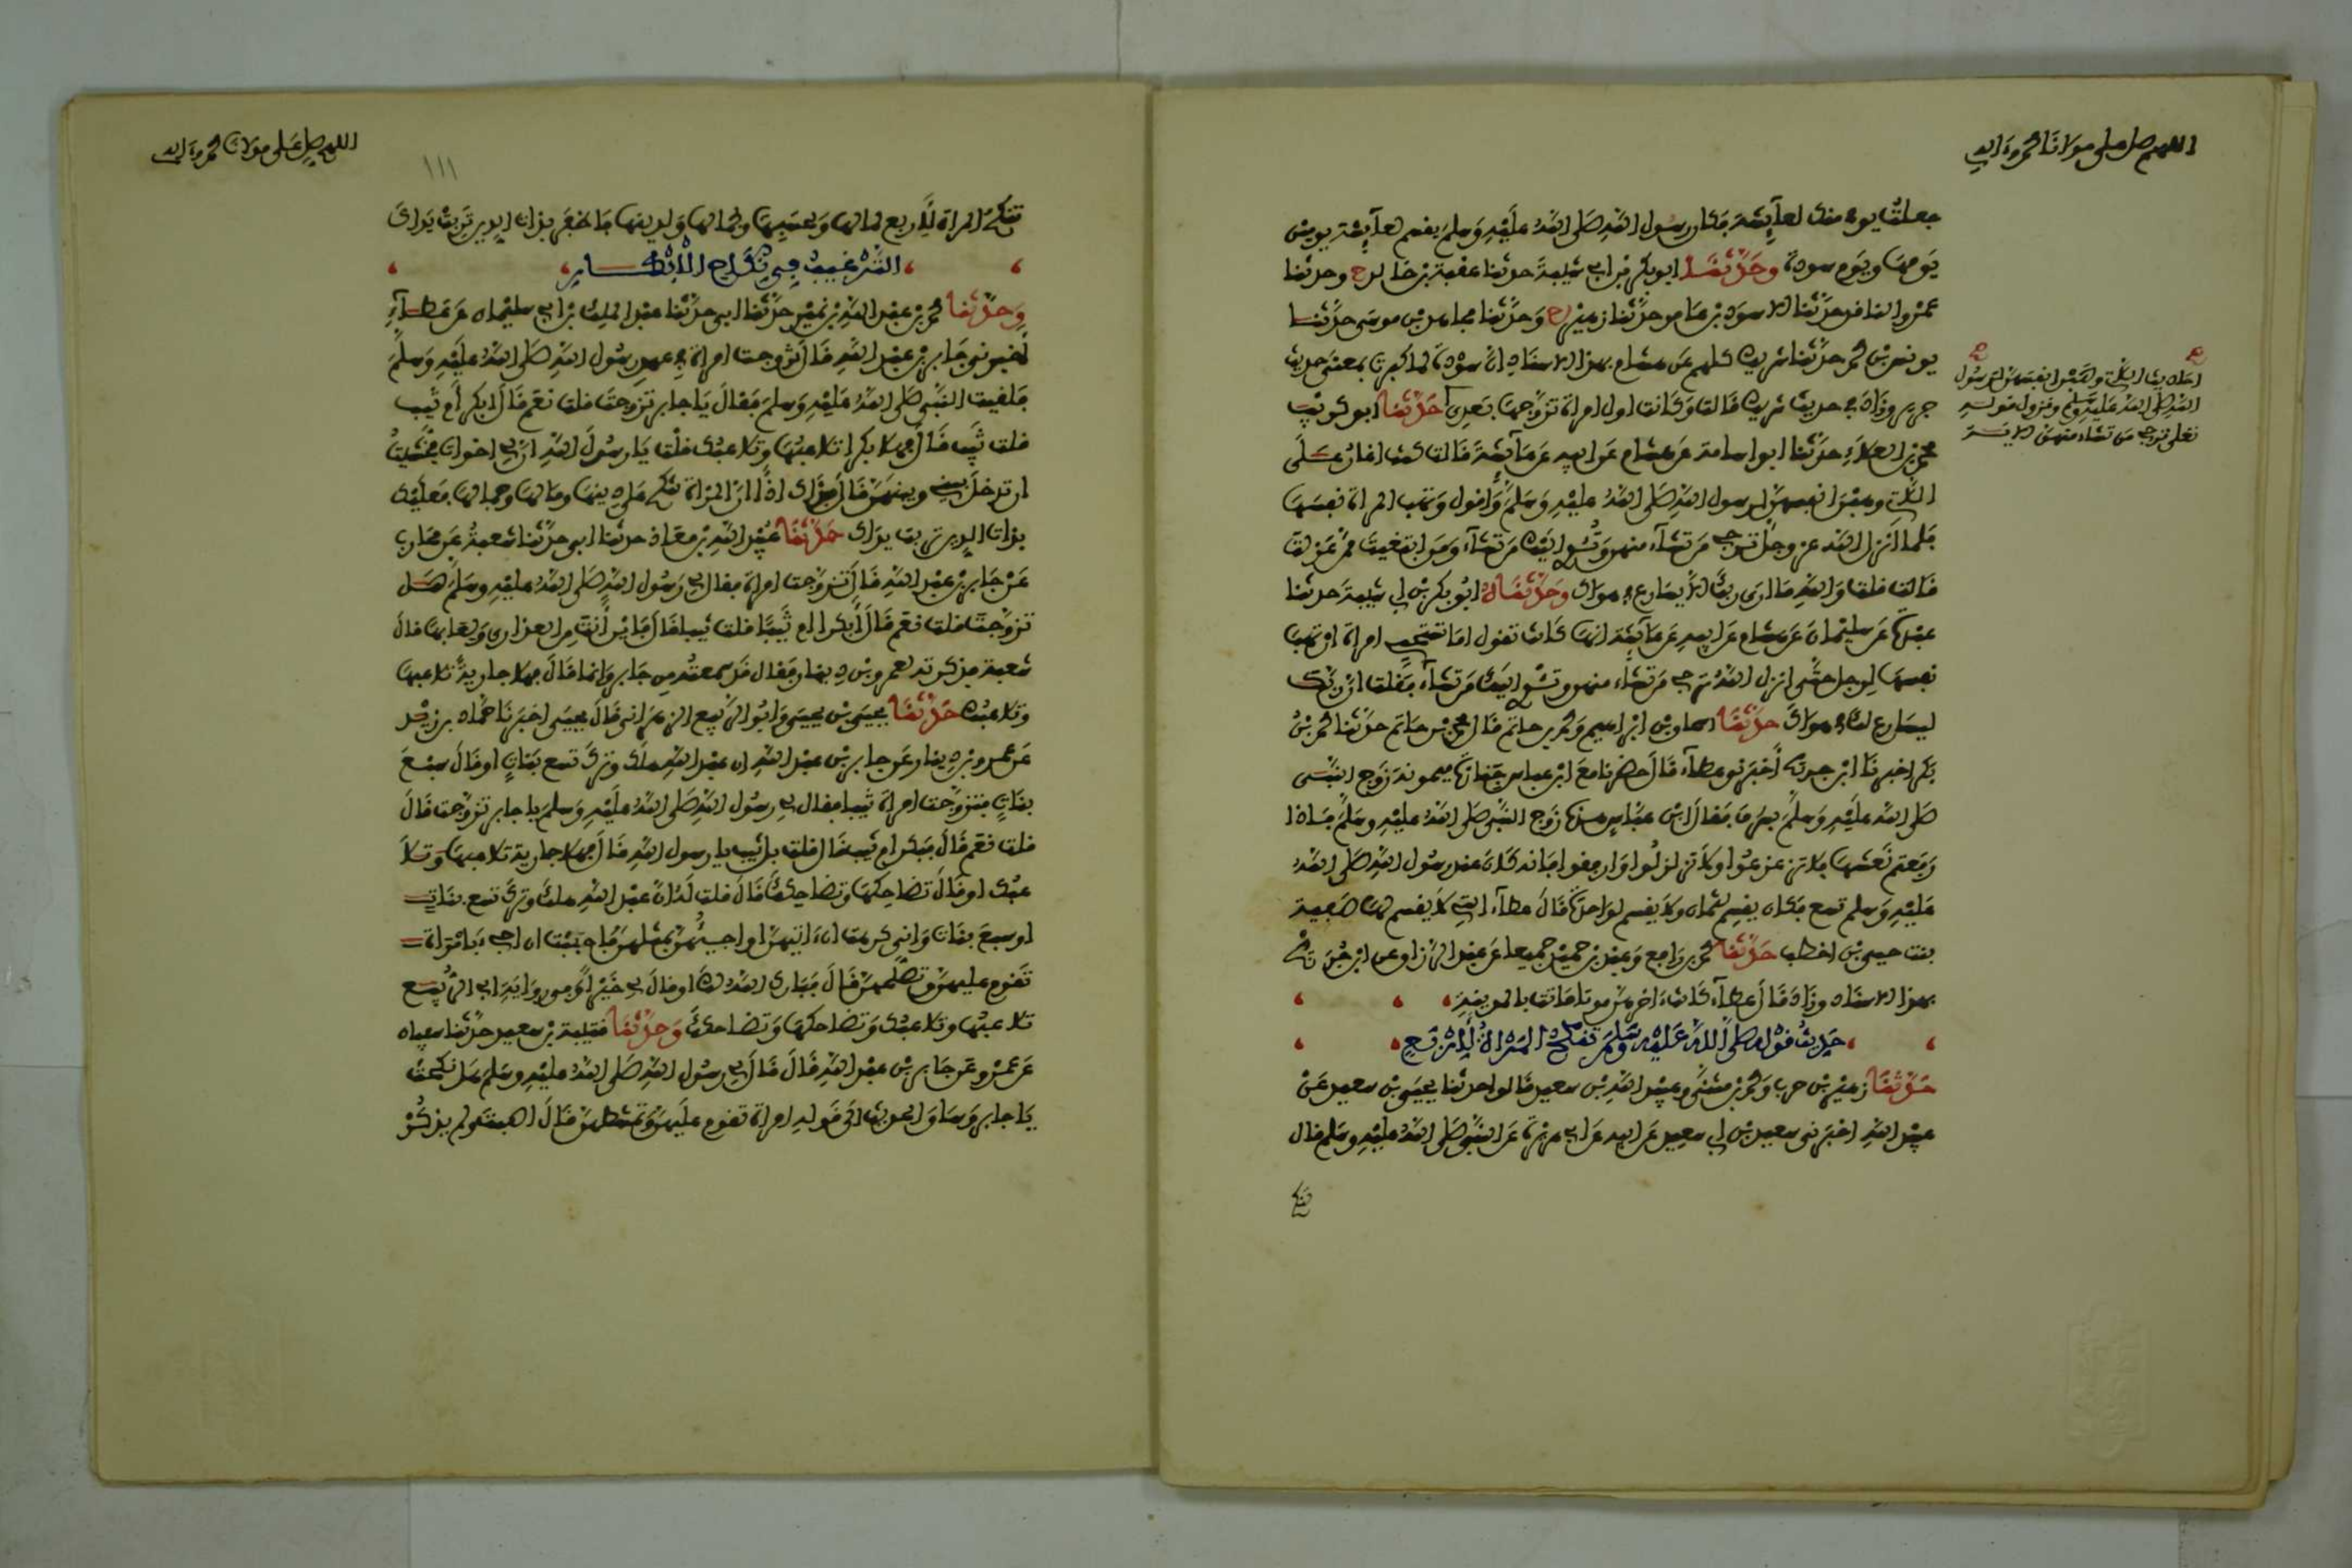 اللهم صل على مولانا محمد وءاله
جعلت يومي منك لعآئشة فكان رسول الله صلى الله عليه وسلم يقسم لعآئشة يومين
يومها ويوم سودة وحدثنا ابو بكر بن ابي شيبة حدثنا عقبة بن خالد ح وحدثنا
عمرو الناقد حدثنا الاسود بن عامر حدثنا زهير ح وحدثنا مجاهد بن موسى حدثنا
يونس بن محمد حدثنا شريك كلهم عن هشام بهذا الاسناد ان سودة لما كبرت بمعنى حديث
جرير وزاد في حديث شريك قالت وكانت اول امراة تزوجها بعدي حدثنا ابو كريب
محمد بن العلاء حدثنا ابو اسامة عن هشام عن ابيه عن عآئشة قالت كنت اغار على
التي وهبن انفسهن لرسول الله صلى الله عليه وسلم واقول وتهب المراة نفسها
فلما انزل الله عز وجل ترجي من تشآء منهن وتئوي اليك من تشآء ومن ابتغيت ممن عزلت
قالت قلت والله ما ارى ربك الا يسارع في هواك وحدثناه ابو بكر بن ابي شيبة حدثنا
عبدة بن سليمان عن هشام عن ابيه عن عآئشة انها كانت تقول اما تستحيي امراة ان تهب
نفسها لرجل حتى انزل الله ترجي من تشاء منهن وتئوي اليك من تشآء فقلت ان ربك
ليسارع لك في هواك حدثنا اسحاق بن ابراهيم ومحمد بن حاتم قال محمد بن حاتم حدثنا محمد بن
بكر اخبرنا ابن جريج أخبرني عطآء قال حضرنا مع ابن عباس جنازة ميمونة زوج النبي
صلى الله عليه وسلم بسرف فقال ابن عباس هذه زوج النبي صلى الله عليه وسلم فاذا
رفعتم نعشها فلا تزعزعوا ولا تزلزلوا وارفقوا فانه كان عند رسول الله صلى الله
عليه وسلم تسع فكان يقسم لثمان ولا يقسم لواحدة قال عطآء التي لا يقسم لها صفية
بنت حيي بن اخطب حدثنا محمد بن رافع وعبد بن حميد جميعا عن عبد الرزاق عن ابن جريج
بهذا الاسناد وزاد قال عطآء كانت ءاخرهن موتا ماتت بالمدينة
حديث قوله صلى الله عليه وسلم تنكح المراة لاربع
حدثنا زهير بن حرب ومحمد بن مثنى وعبيد الله بن سعيد قالوا حدثنا يحيى بن سعيد عن
عبيد الله اخبرني سعيد بن ابي سعيد عن ابيه عن ابي هريرة عن النبي صلى الله عليه وسلم قال
تنكح
احاديث التي وهبن انفسهن لرسول
الله صلى الله عليه وسلم ونزول قوله
تعلى ترجي من تشاء منهن الاية
اللهم صل على مولانا محمد وءاله
١١١
تنكح المراة لأربع لمالها ولحسبها ولجمالها ولدينها فاظفر بذات الدين تربت يداك
الترغيب في نكاح الابكار
وحدثنا محمد بن عبد الله بن نمير حدثنا ابي حدثنا عبد الملك بن ابي سليمان عن عطآء
أخبرني جابر بن عبد الله قال تزوجت امراة في عهد رسول الله صلى الله عليه وسلم
فلقيت النبي صلى الله عليه وسلم فقال يا جابر تزوجت قلت نعم قال أبكر أم ثيب
قلت ثيب قال فهلا بكرا تلاعبها وتلاعبك قلت يا رسول الله ان لي اخوات فخشيت
ان تدخل بيني وبينهن قال فذاك اذا ان المراة تنكح على دينها ومالها وجمالها فعليك
بذات الدين تربت يداك حدثنا عبيد الله بن معاذ حدثنا ابي حدثنا شعبة عن محارب
عن جابر بن عبد الله قال تزوجت امراة فقال لي رسول الله صلى الله عليه وسلم هل
تزوجت قلت نعم قال أبكرا ام ثيبا قلت ثيبا قال فاين أنت من العذارى ولعابها قال
شعبة فذكرته لعمرو بن دينار فقال قد سمعته من جابر وانما قال فهلا جارية تلاعبها
وتلاعبك حدثنا يحيى بن يحيى وابو الربيع الزهراني قال يحيى اخبرنا حماد بن زيد
عن عمرو بن دينار عن جابر بن عبد الله ان عبد الله هلك وترك تسع بنات او قال سبع
بنات فتزوجت امراة ثيبا فقال لي رسول الله صلى الله عليه وسلم يا جابر تزوجت قال
قلت نعم قال فبكر ام ثيب قال قلت بل ثيب يا رسول الله قال فهلا جارية تلاعبها وتلا
عبك او قال تضاحكها وتضاحكك قال قلت له ان عبد الله هلك وترك تسع بنات
او سبع بنات واني كرهت ان ءاتيهن او اجيئهن بمثلهن فاحببت ان اجيء بامراة
تقوم عليهن وتصلحهن قال فبارك الله لك او قال لي خيرا وفي رواية ابي الربيع
تلاعبها وتلاعبك وتضاحكها وتضاحكك وحدثنا قتيبة بن سعيد حدثنا سفيان
عن عمرو عن جابر بن عبد الله قال قال لي رسول الله صلى الله عليه وسلم هل نكحت
يا جابر وساق الحديث الى قوله امراة تقوم عليهن وتمشطهن قال اصبت ولم يذكر